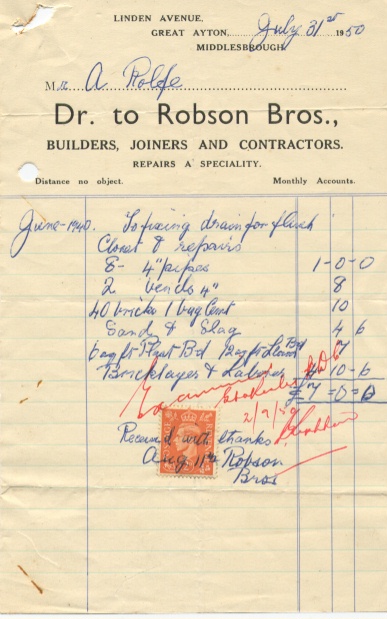 LINDEN AVENUE,
GREAT AYTON, July 31st 1950
MIDDLESBROUGH
Mr A Rolfe
Dr. to Robson Bros.,
BUILDERS, JOINERS AND CONTRACTORS.
REPAIRS A SPECIALITY.
Distance no object. Monthly Accounts.
June 1940. To fixing drain for flush
Closet & repairs
8- 4" pipes 1-0-0
2 bends 4" 8
40 bricks 1 bag Cent 10
Sand & Slag 4 6
Bd 7
Bricklayer & Labourer 4 10-6
£7=0=0
Examined
2/9/50
Received with thanks
Aug 11th Robson
Bros